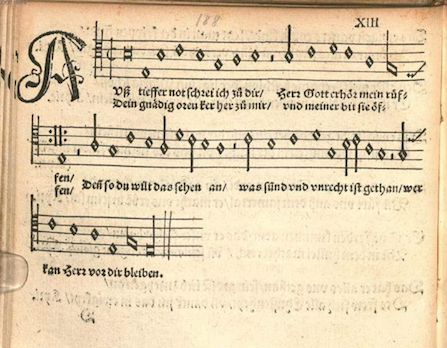 188
XIII
AUß tieffer not schrei ich zů dir/ Herr Gott erhör mein růf/
Dein gnädig oren ker her zů mir/ vnd meiner bit sie öf/
fen/ Deñ so du wilt das sehen an/ was sünd vnd vnrecht ist gethan/ wer
fen/
kan Herr vor dir bleiben.